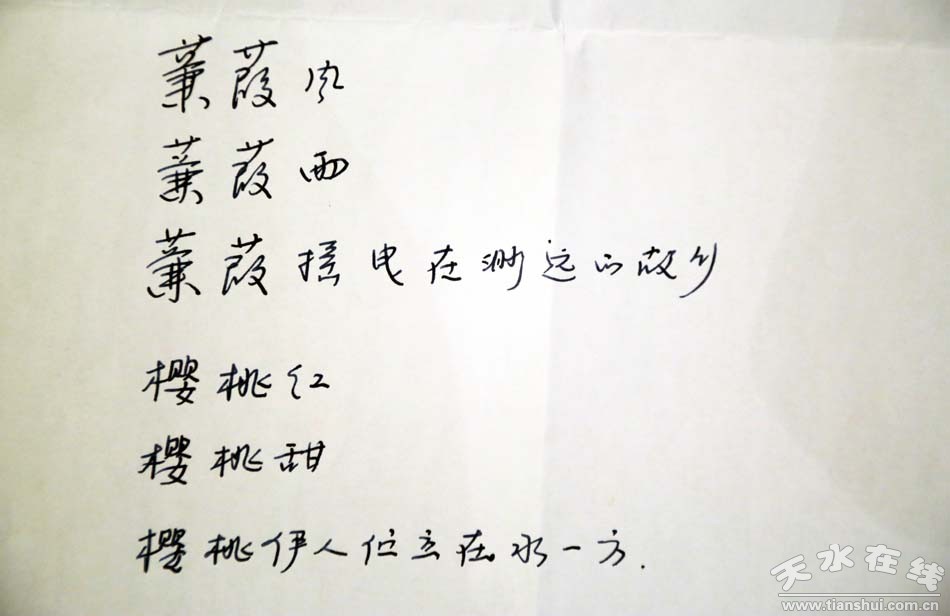 蒹葭风
蒹葭雨
蒹葭摇曳在渺远的故乡
樱桃红
樱桃甜
樱桃伊人伫立在水一方.
天水在线
www.tianshui.com.cn